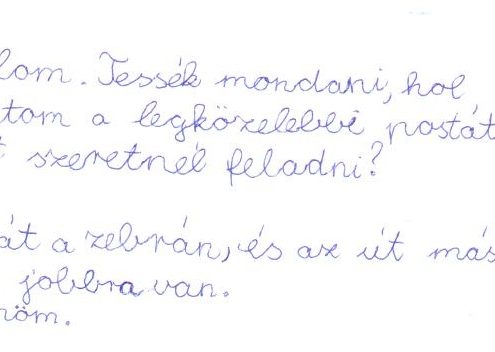 lom. Tessék mondani, hol
tom a legközelebbi postát
t szeretnél feladni?
át a zebrán, és az út más
jobbra van.
nöm.